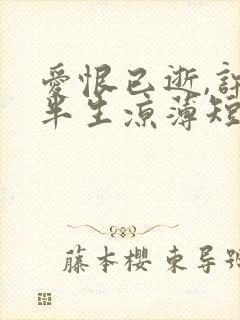 愛恨已逝,許
半生涼薄短
藤本櫻 東导